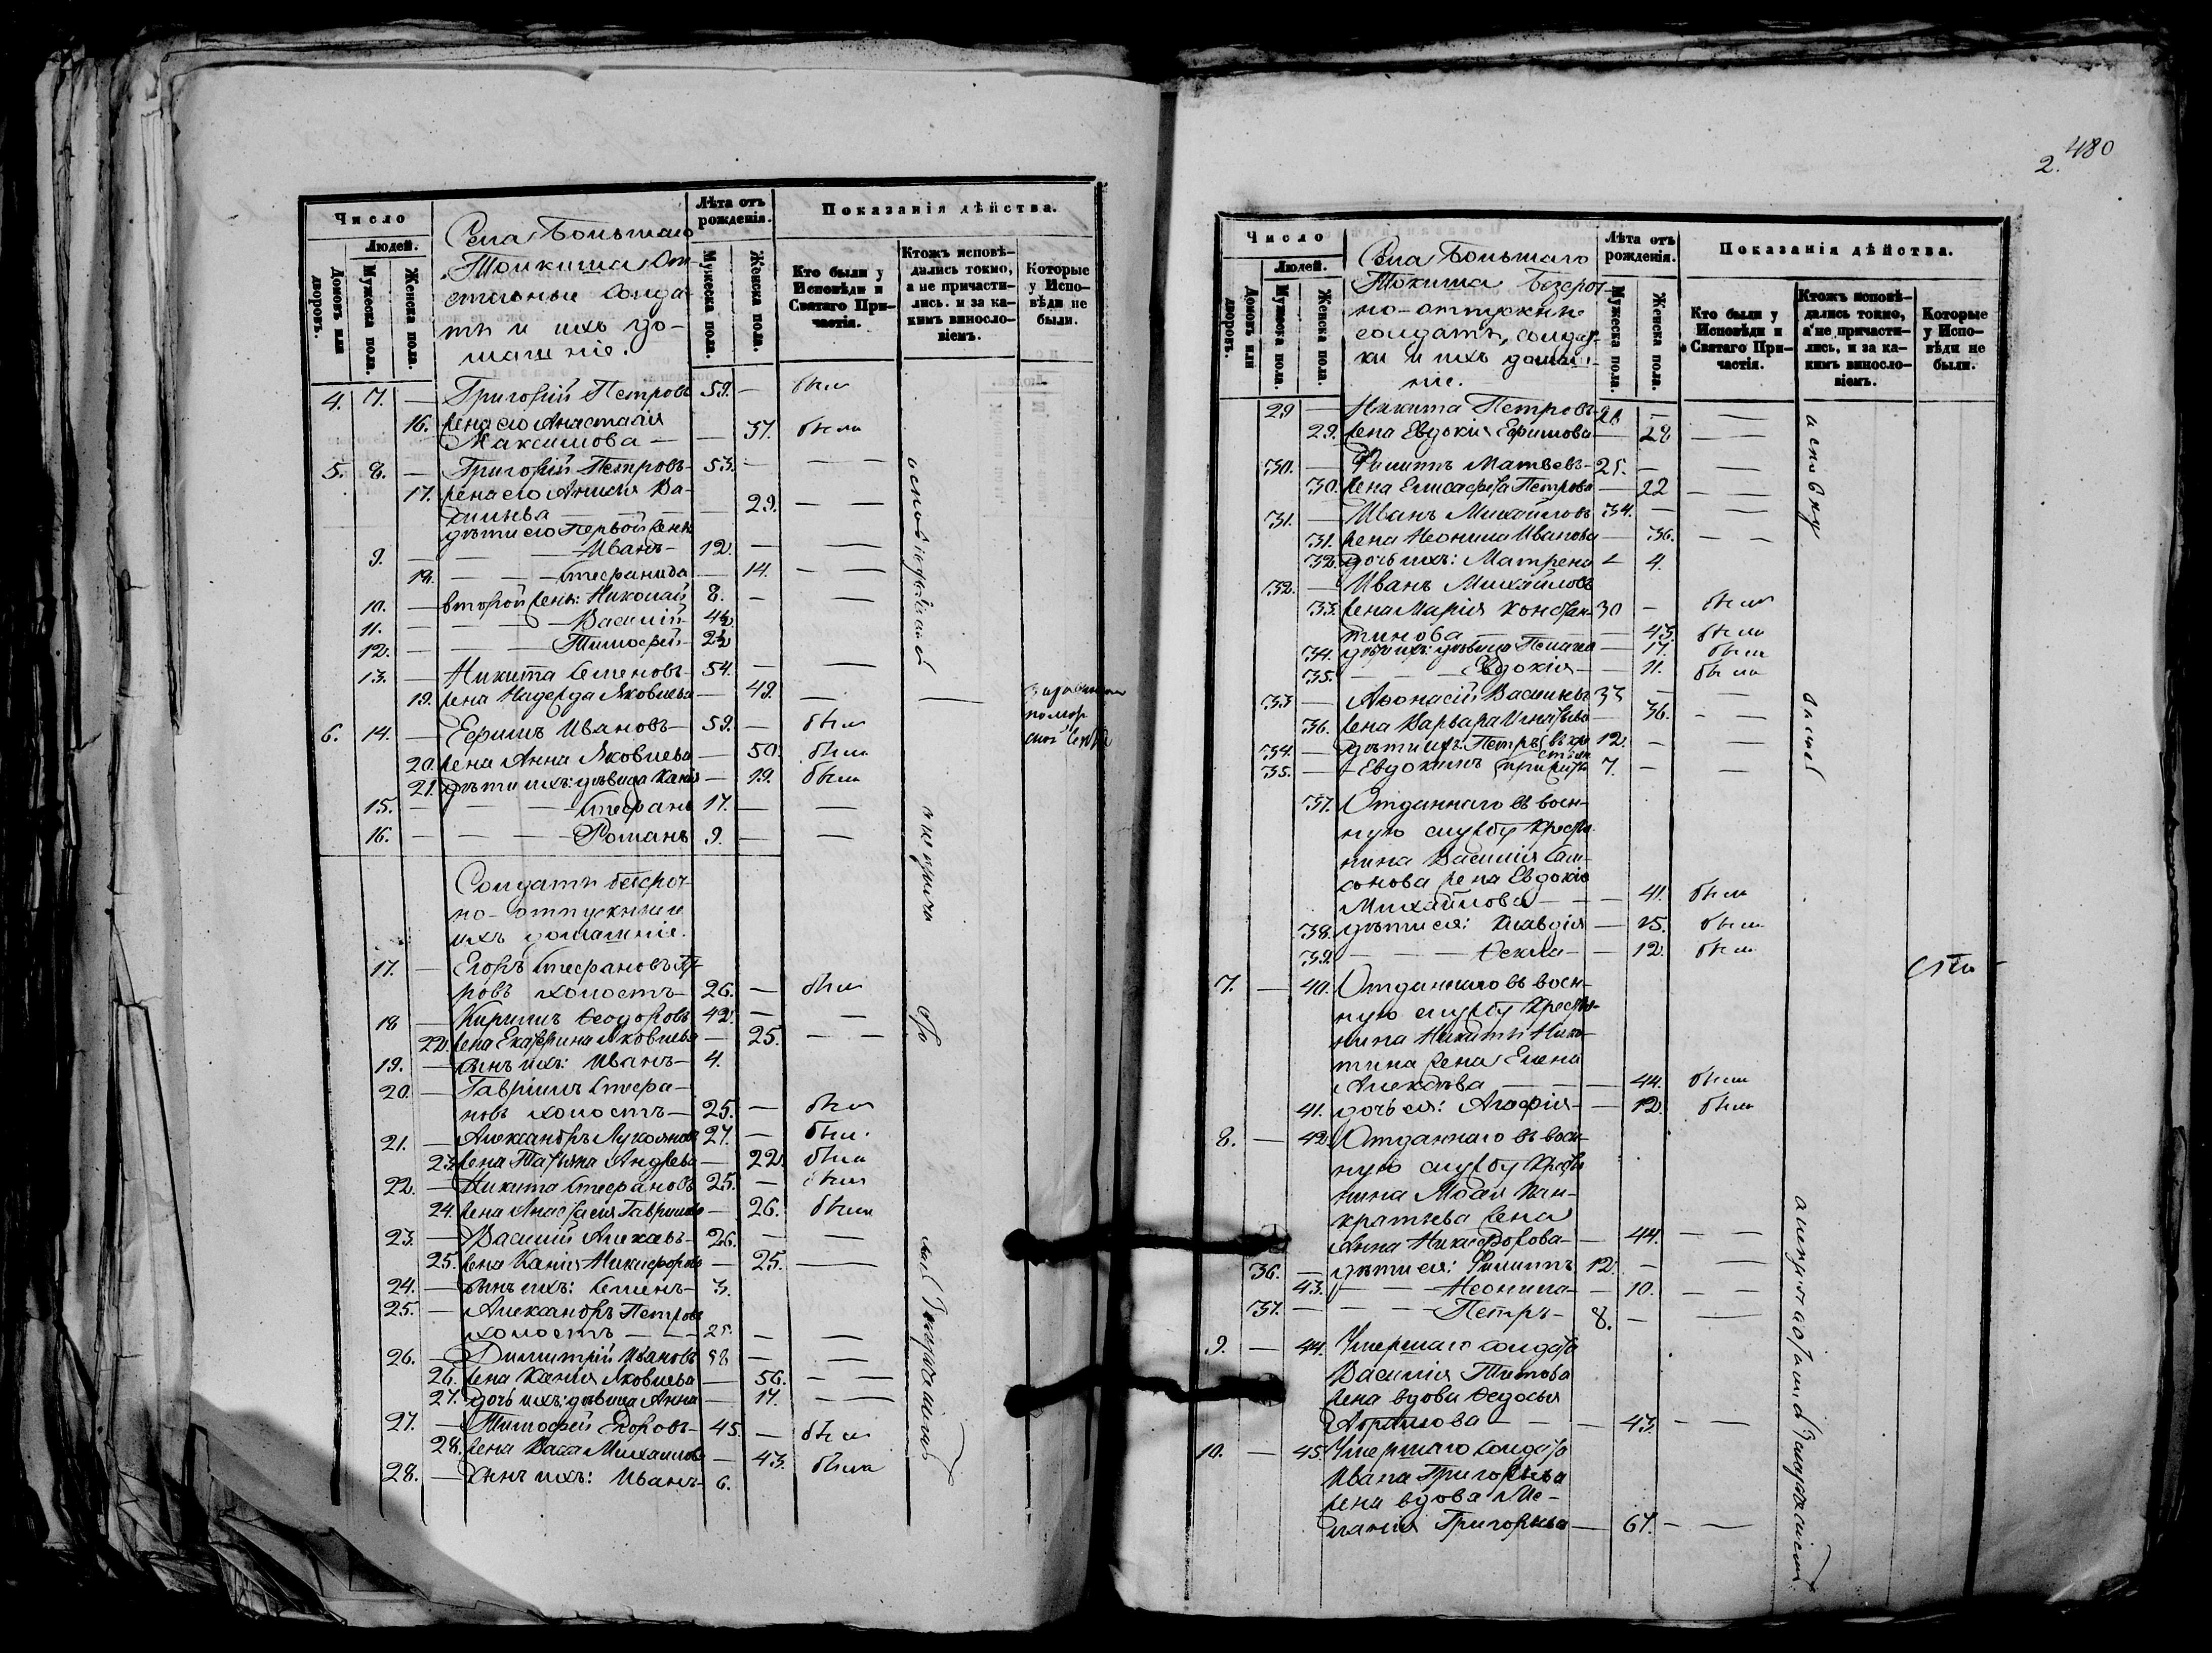 Число
Людей.
Домовъ или дворовъ.
Мужеска пола.
Женска пола.
Села Большаго
Толкиша От-
ставные Солда-
ты и ихъ до-
машніе.
Лѣта отъ рожденія.
Мужеска пола.
Женска пола.
Показанія дѣйства.
Кто были у Исповѣди и Святаго Причастія.
Ктожъ исповѣ-
дались токмо,
а не причасти-
лись. и за ка-
кимъ винослο-
віемъ.
Которые
у Испо-
вѣди не
были.
4. 7. — Григорій Петровъ 59. — былъ
16. Жена его Анастасія
Максимова — — 37. была
5. 8. — Григорій Петровъ — 53. — — —
17. Жена его Анисія Ва-
сильева — — — 29. — —
дѣти его первой жены
9. — — — Иванъ — 12. — —
18. — — — Стефанида — 14. — —
10. — второй жены: Николай 8. — —
11. — — — Василій — 4½
12. — — — Тимофей — 2½
13. — Никита Семеновъ — 54. — —
19. Жена Надежда Яковлева — 49. — —
6. 14. — Ефимъ Ивановъ — 59. — былъ
20. Жена Анна Яковлева — 50. была
21. Дѣти ихъ: дѣвица Ксенія — 19. была
15. — — — Стефанъ 17. — —
16. — — — Романъ 9. — —
Солдаты безсроч-
но-отпускные и
ихъ домашніе.
17. — Егоръ Стефановъ Пет-
ровъ холостъ — 26. — былъ
18 — Кириллъ Ѳеодоровъ 42. — —
22. Жена Екатерина Яковлева — 25. — —
19. — сынъ ихъ: Иванъ — 4.
20. — Гавріилъ Стефа-
новъ холостъ — 25. — былъ
21. — Александръ Лукояновъ 27. — былъ
23. Жена Татьяна Андреева — 22. была
22. — Никита Стефановъ 25. — былъ
24. Жена Анастасія Гаврилова — 26. была
23. — Василій Алексѣевъ — 26. — —
25. Жена Ксенія Никифорова — 25. —
24. — сынъ ихъ: Семенъ — 3.
25. — Александръ Петровъ
холостъ — — 25. — —
26. — Димитрій Ивановъ 58 — —
26. Жена Ксенія Яковлева — 56. — —
27. дочь ихъ: дѣвица Анна — 17. — —
27. — Тимофей Егоровъ — 45. — былъ
28. Жена Васса Михаилова — 43. была
28. — сынъ ихъ: Иванъ — 6.
2. 480
Число
Людей.
Домовъ или дворовъ.
Мужеска пола.
Женска пола.
Села Большаго
Токиша Безсроч-
но-отпускные
солдаты, солдат-
ки и ихъ домаш-
ніе.
Лѣта отъ рожденія.
Мужеска пола.
Женска пола.
Показанія дѣйства.
Кто были у
Исповѣди и
Святаго При-
частія.
Ктожъ исповѣ-
дались токмо,
а не причасти-
лись, и за ка-
кимъ винослο-
віемъ.
Которые
у Испо-
вѣди не
были.
29 — Никита Петровъ — —
29. Жена Евдокія Ефимова — 28 — —
30. — Филиппъ Матвеевъ — 25. — —
30. Жена Елисавета Петрова — 22 — —
31. — Иванъ Михайловъ 34. — —
31. Жена Неонила Иванова — 36. — —
32. дочь ихъ: Матрена — 4.
32. — Иванъ Михайловъ
33. Жена Марія Констан- 30 — былъ
тинова — 43. была
34. дѣти ихъ: дѣвица Пелагія — 17. была
35. — — Евдокія — — 11. была
33 — Аѳонасій Васильевъ 33 — —
36. Жена Варвара Игнатьева — 36. — —
34 — дѣти ихъ: Петръ 12. — —
35. — Евдокимъ 7. — —
37. Отданнаго въ воен-
ную службу Крестья-
нина Василія Сам-
сонова жена Евдокія
Михайлова — — — 41. была
38. дѣти ея: Клавдія — 15. была
39. — — — Ѳекла — — 12. была
7. — 40. Отданнаго въ воен-
ную службу Крестья-
нина Никиты Ники-
тина жена Елена
Алексѣева — — — 44. была
41. дочь ея: Агафія — — 12. была
8. — 42. Отданнаго въ воен-
ную службу Крестья-
нина Моѵсея Пан-
кратьева жена
Анна Никифорова — — 44. — —
36. — дѣти ея: Филиппъ 12. — —
43. — — Неонила — — 10. — —
37. — — — Петръ — 8. — —
9. — 44. Умершаго солдата
Василія Титова
жена вдова Ѳедосья
Абрамова — — — 43. — —
10. — 45. Умершаго солдата
Ивана Григорьева
жена вдова Ме-
ланія Григорьева — 67. — —